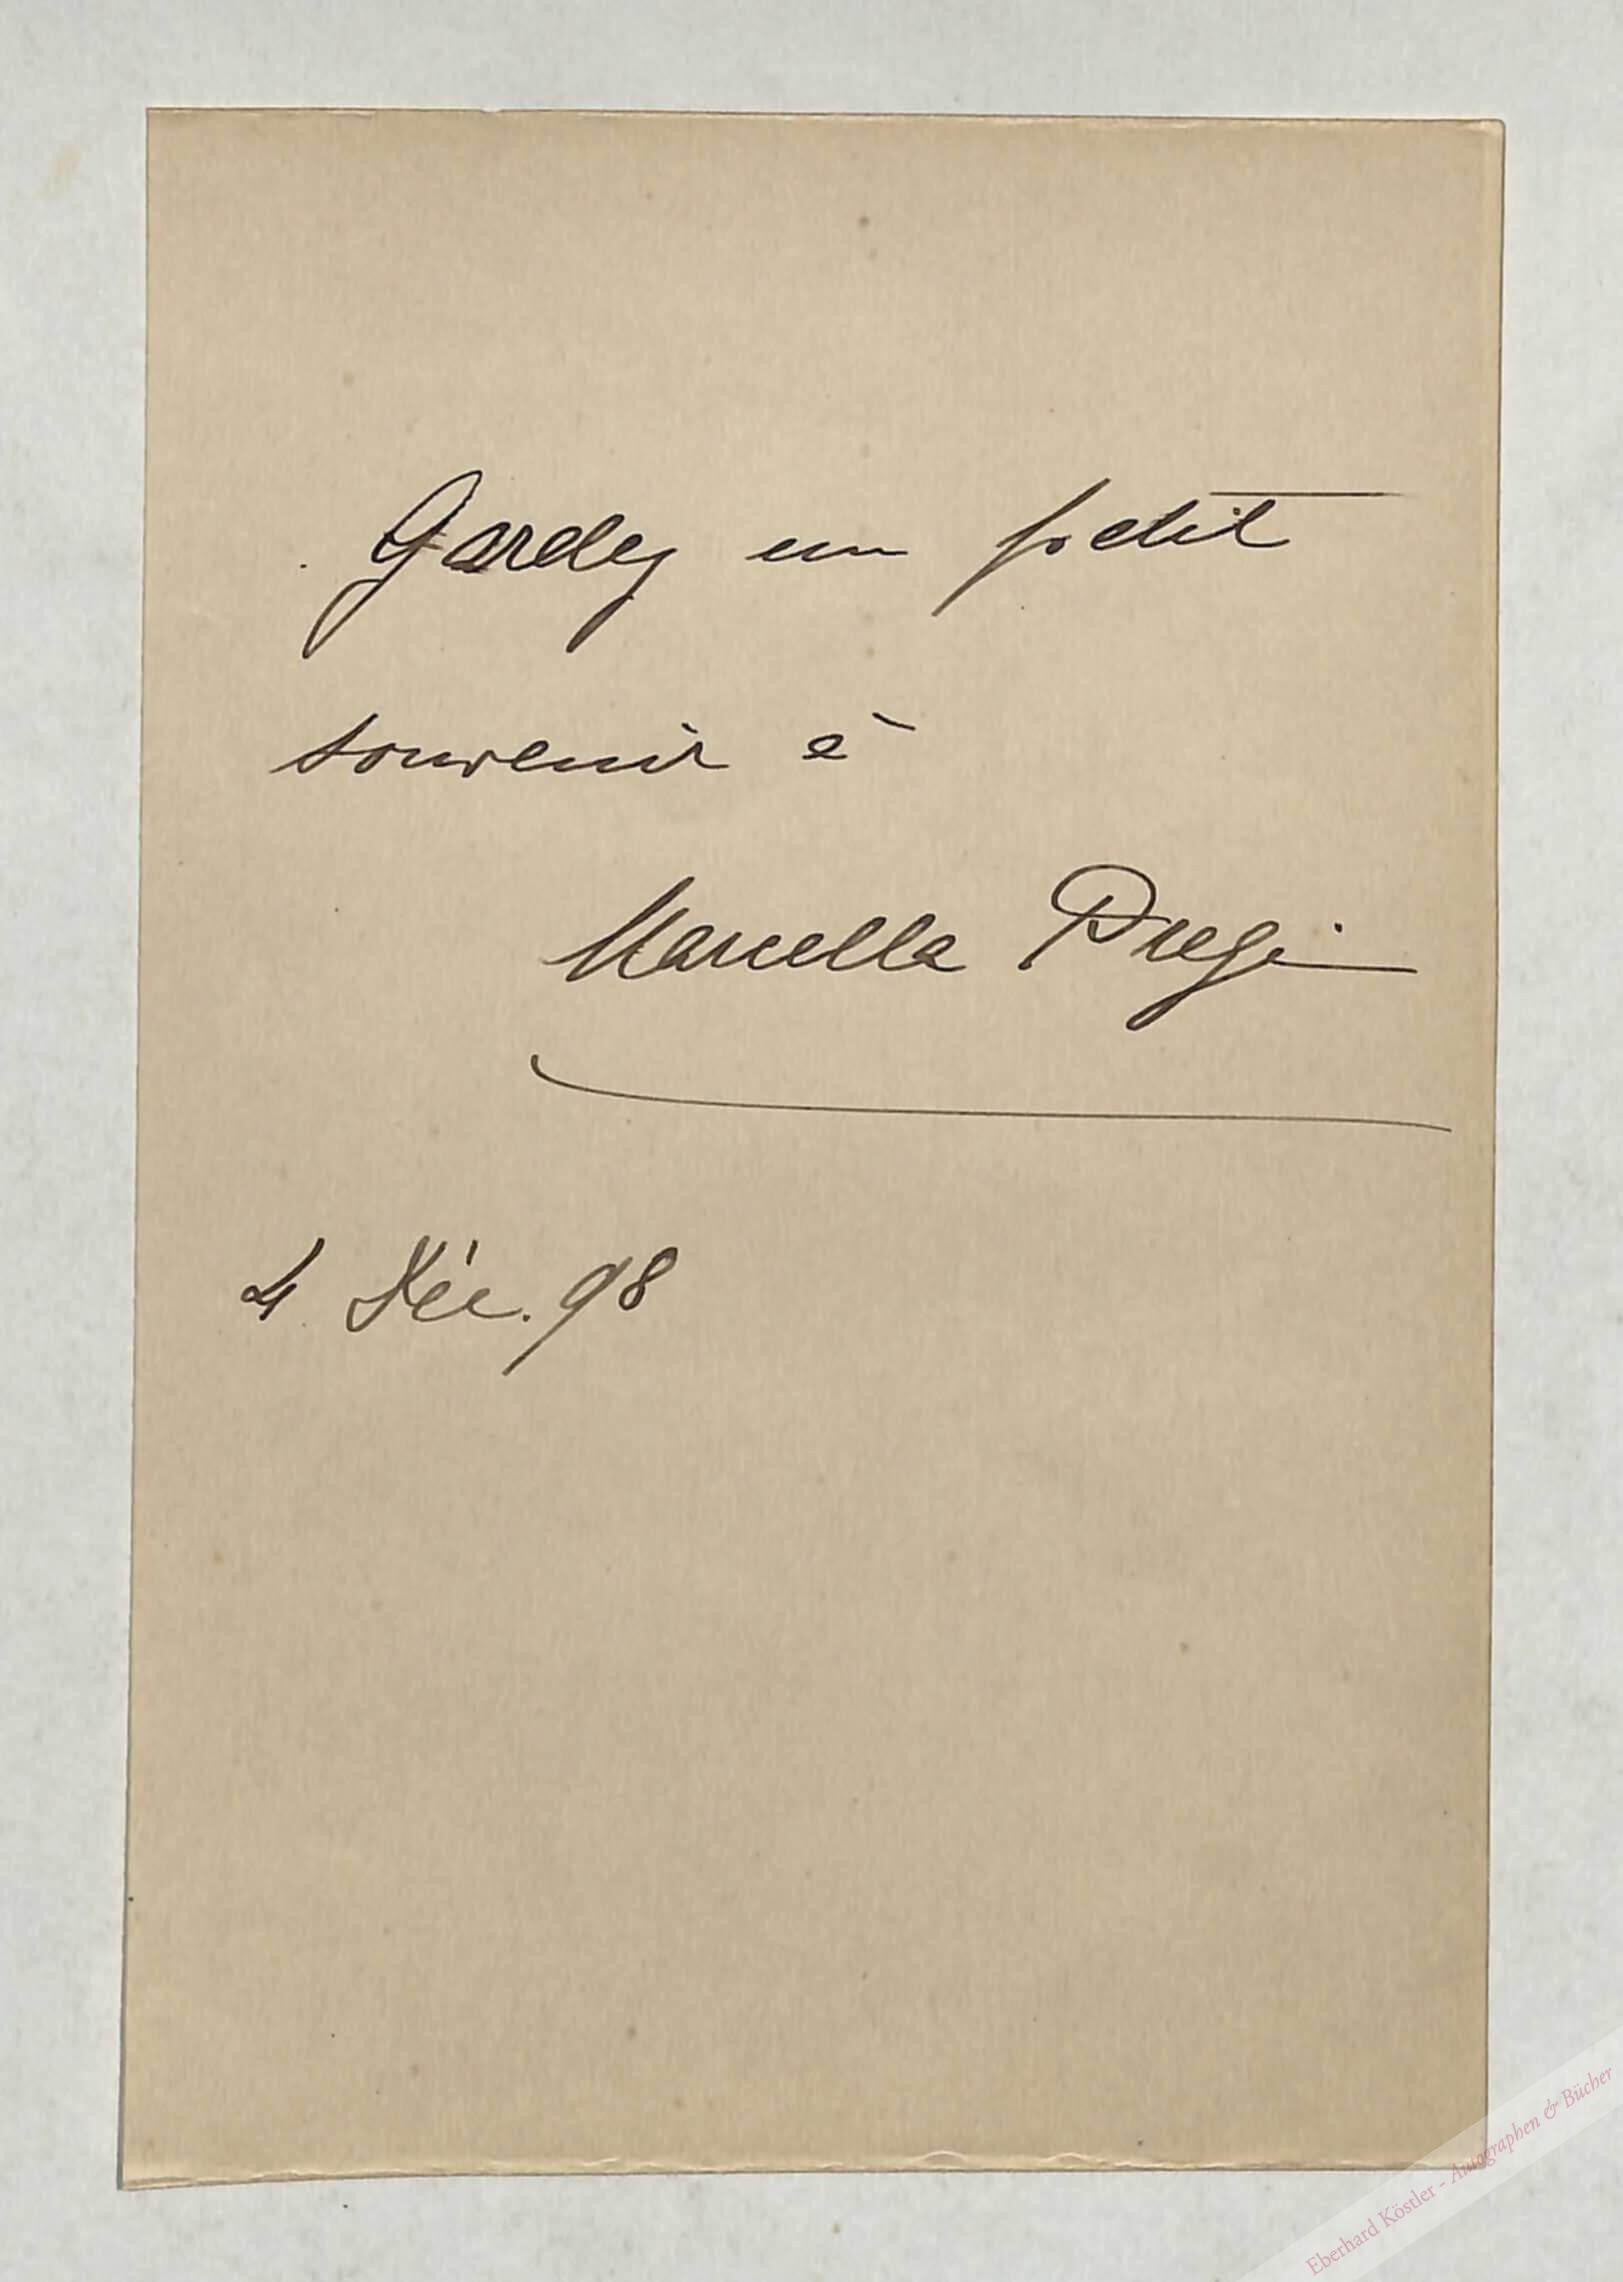 Gardez un petit
souvenir à
Marcella Pregi
4 Déc. 98
Eberhard Köstler - Autographen & Bücher